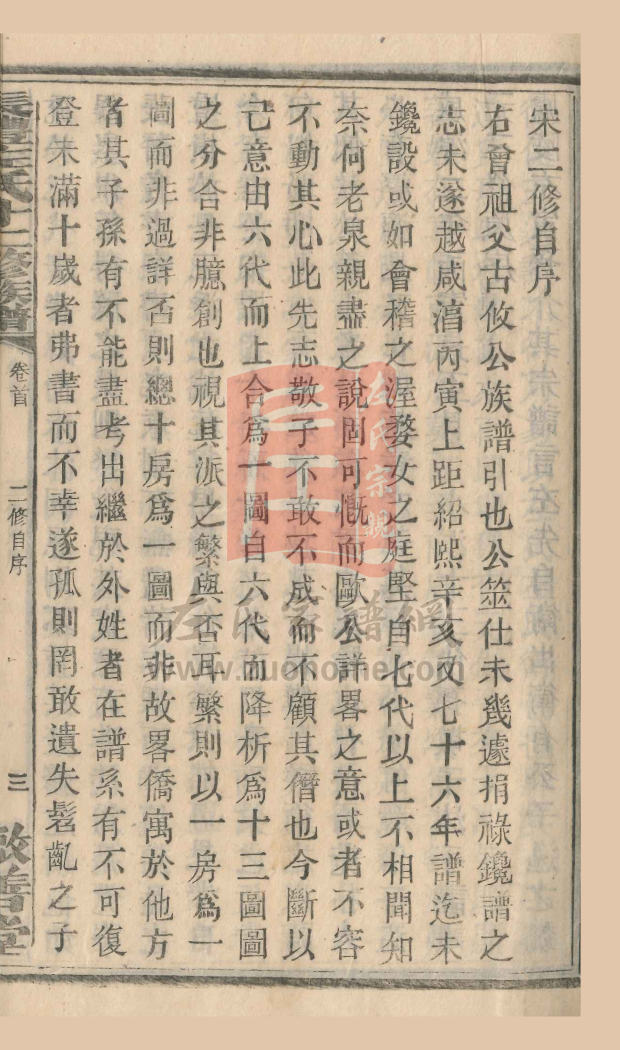 宋二修自序
右曾祖父古攸公族譜引也公筮仕未幾遽捐祿鑱譜之
志未遂越咸淳丙寅上距紹熙辛亥又七十六年譜迄未
鑱設或如會稽之渥婺女之庭堅自七代以上不相聞知
奈何老泉親盡之說固可慨而歐公詳畧之意或者不容
不動其心此先志敬子不敢不成而不顧其僭也今斷以
己意由六代而上合爲一圖自六代而降析爲十三圖圖
之分合非臆創也視其派之繁與否耳繁則以一房爲一
圖而非過詳否則總十房爲一圖而非故畧僑寓於他方
者其子孫有不能盡考出繼於外姓者在譜系有不可復
登未滿十歲者弗書而不幸遂孤則罔敢遺失髫齓之子
左氏十二修族譜
卷首
二修自序
三
敦善堂
左氏宗親
左氏家譜網
www.zuohome.com